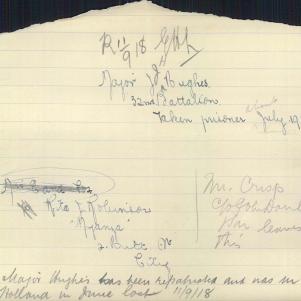 R 11/9/18
Major J. A. Hughes
32nd Battalion
Taken prisoner about July 19
Rita J. Robinson
"Nyanza"
2. Butt St
City
Mr. Crisp
C/o John
Har leaves
This
Major Hughes has been repatriated and was in
Holland in June last 11/9/18